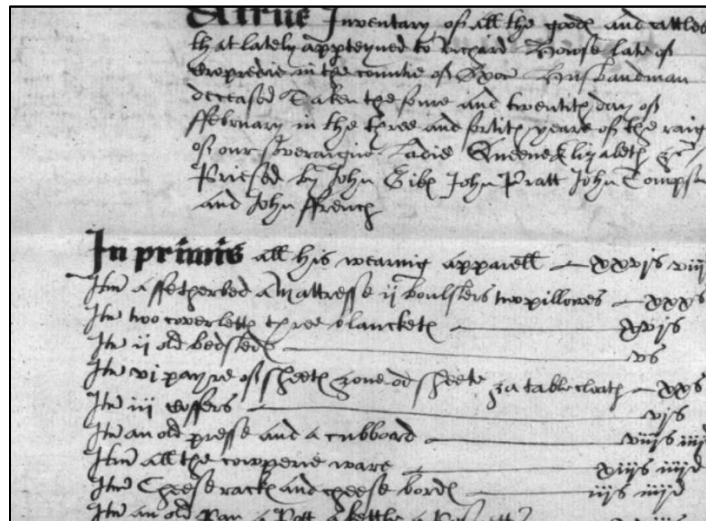 A true Inventary of all the goodes and cattles
that lately appteyned to Richard Howse late of
Cropredie in the countie of Oxon Husbandman
deceased Taken the fowre and twentith day of
ffebruary in the three and fortith yeare of the raig
of our soveraigne Ladie Queene Elizabeth &c
Prised by John Gibs John Pratt John Tompson
and John ffrench
In primis all his wearing apparell xxvjs viij
Itm a ffetherbed a Mattresse ij boulsters two pillowes xxxs
Itm two coverletts three blanckets xvjs
Itm ij old bedsteds vs
Itm vj payre of sheets & one od sheete & a tablecloath xxs
Itm iij coffers vjs
Itm an old presse and a cubboard iiijd
Itm all the cowperie ware xiijs iiijd
Itm Cheese racke and cheese bords iijs iiijd
Itm an old Pan a Pott a kettle a